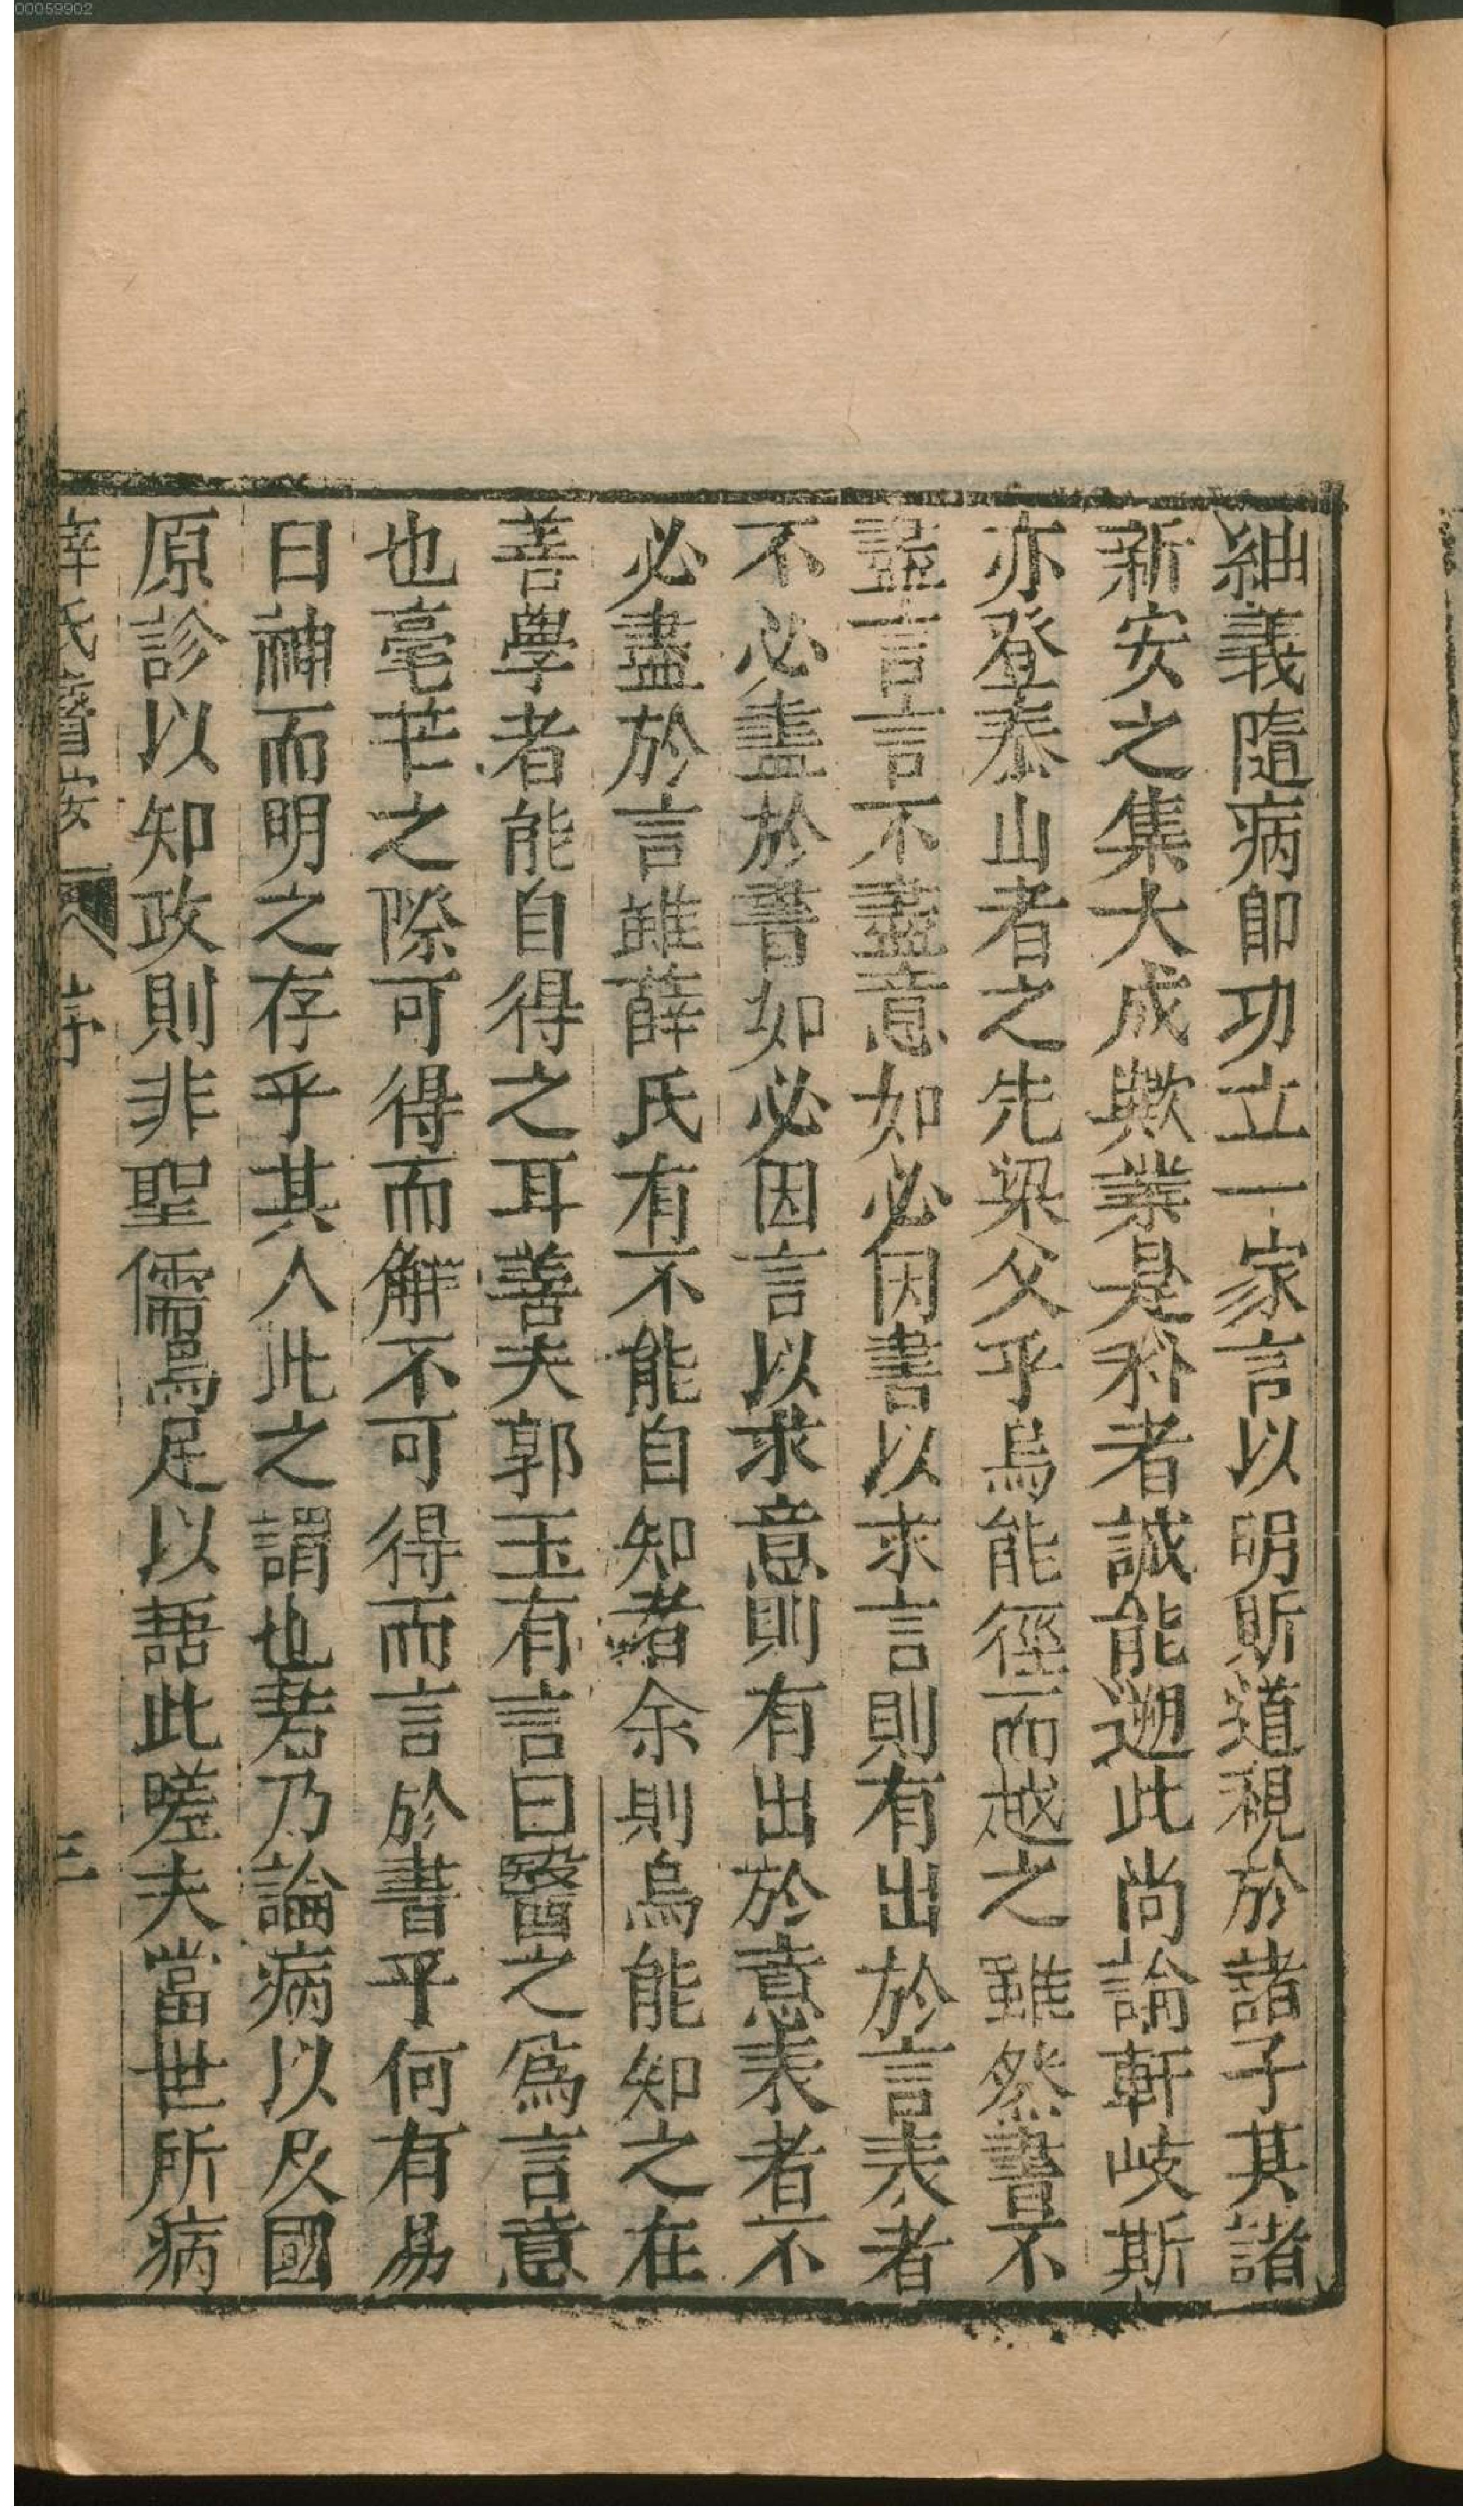 00059902
紬義隨病卽功立一家言以明斯道視於諸子其諸
新安之集大成歟業是科者誠能遡此尚論軒岐斯
亦登泰山者之先梁父乎烏能徑而越之雖然書不
盡言言不盡意如必因書以求言則有出於言表者
不必盡於書如必因言以求意則有出於意表者不
必盡於言雖薛氏有不能自知者余則烏能知之在
善學者能自得之耳善夫郭玉有言曰醫之爲言意
也毫芒之際可得而解不可得而言於書乎何有易
曰神而明之存乎其人此之謂也若乃論病以及國
原診以知政則非聖儒烏足以語此嗟夫當世所病
薛氏醫按 序 三